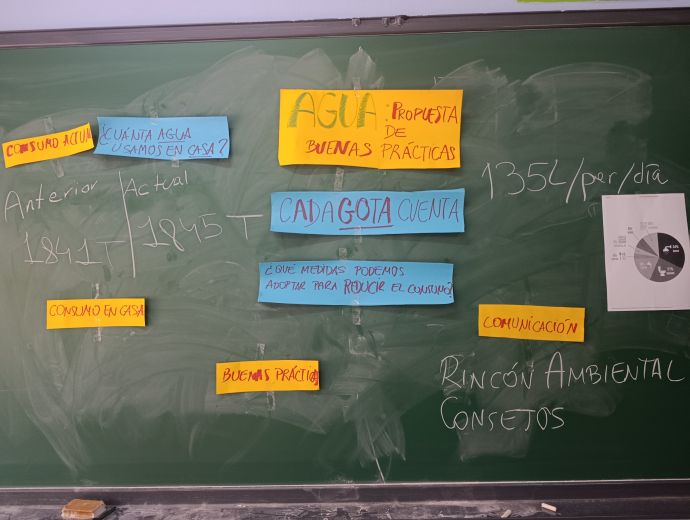 AGUA: PROPUESTA
DE
BUENAS PRÁCTICAS
CONSUMO ACTUAL
¿CUÁNTA AGUA
USAMOS EN CASA?
Anterior | Actual
1841 T | 1845 T
CADA GOTA CUENTA
135L/per/día
¿QUÉ MEDIDAS PODEMOS
ADOPTAR PARA REDUCIR EL CONSUMO?
CONSUMO EN CASA
COMUNICACIÓN
BUENAS PRÁCTICAS
RINCÓN AMBIENTAL
CONSEJOS